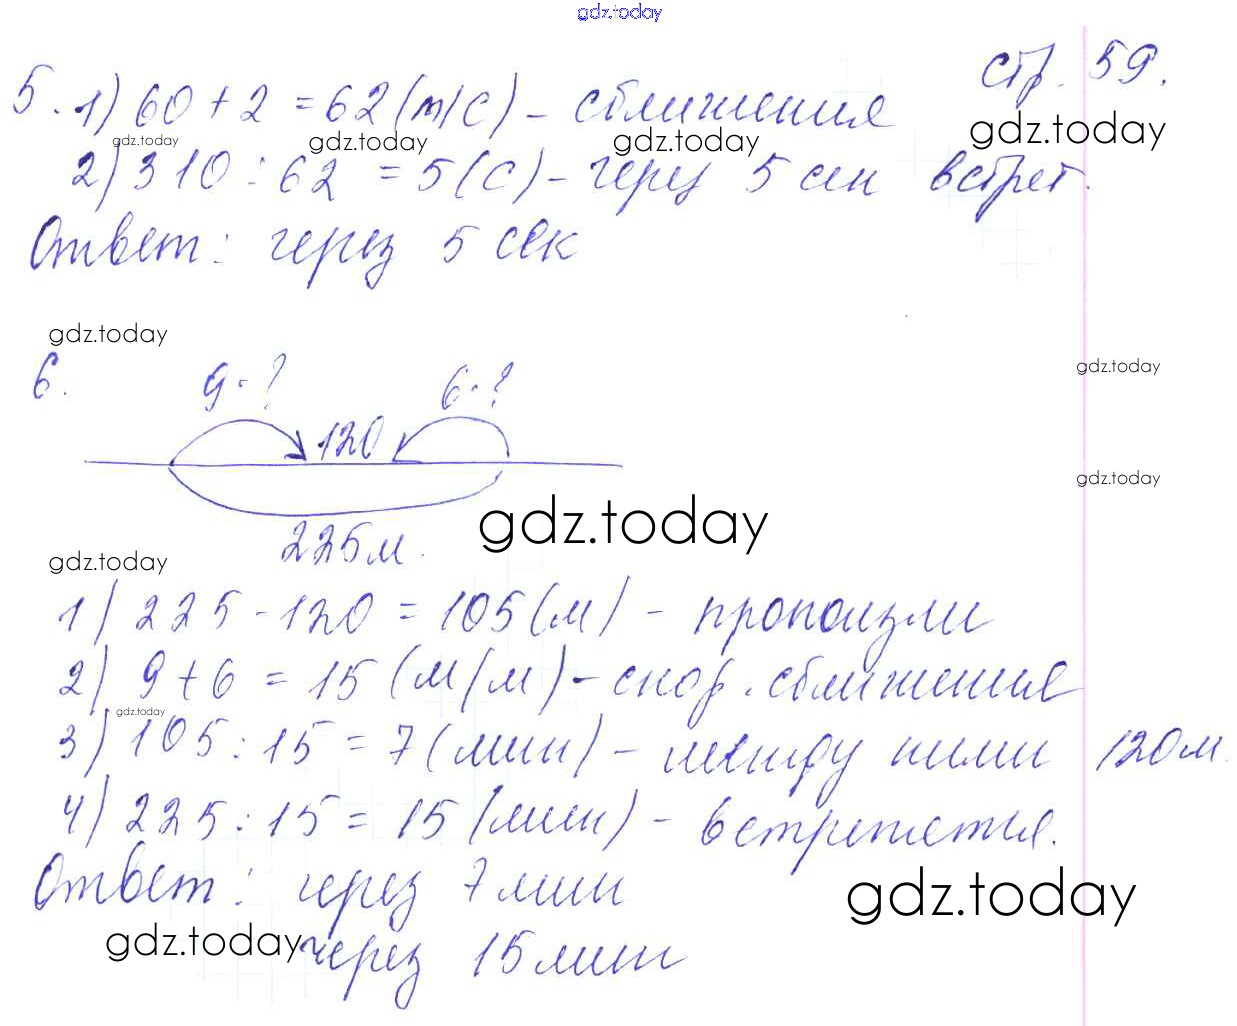 gdz.today
стр. 59.
5. 1) 60 + 2 = 62 (м/с) - сближения
gdz.today gdz.today gdz.today gdz.today
2) 310 : 62 = 5 (с) - через 5 сек встрет.
Ответ: через 5 сек
gdz.today
6. 9·? 6·?
gdz.today
120
gdz.today
gdz.today
225 м.
gdz.today
1) 225 - 120 = 105 (м) - проползли
2) 9 + 6 = 15 (м/м) - скор. сближения
gdz.today
3) 105 : 15 = 7 (мин) - между ними 120 м.
4) 225 : 15 = 15 (мин) - встретятся.
Ответ: через 7 мин
gdz.today
gdz.today
через 15 мин